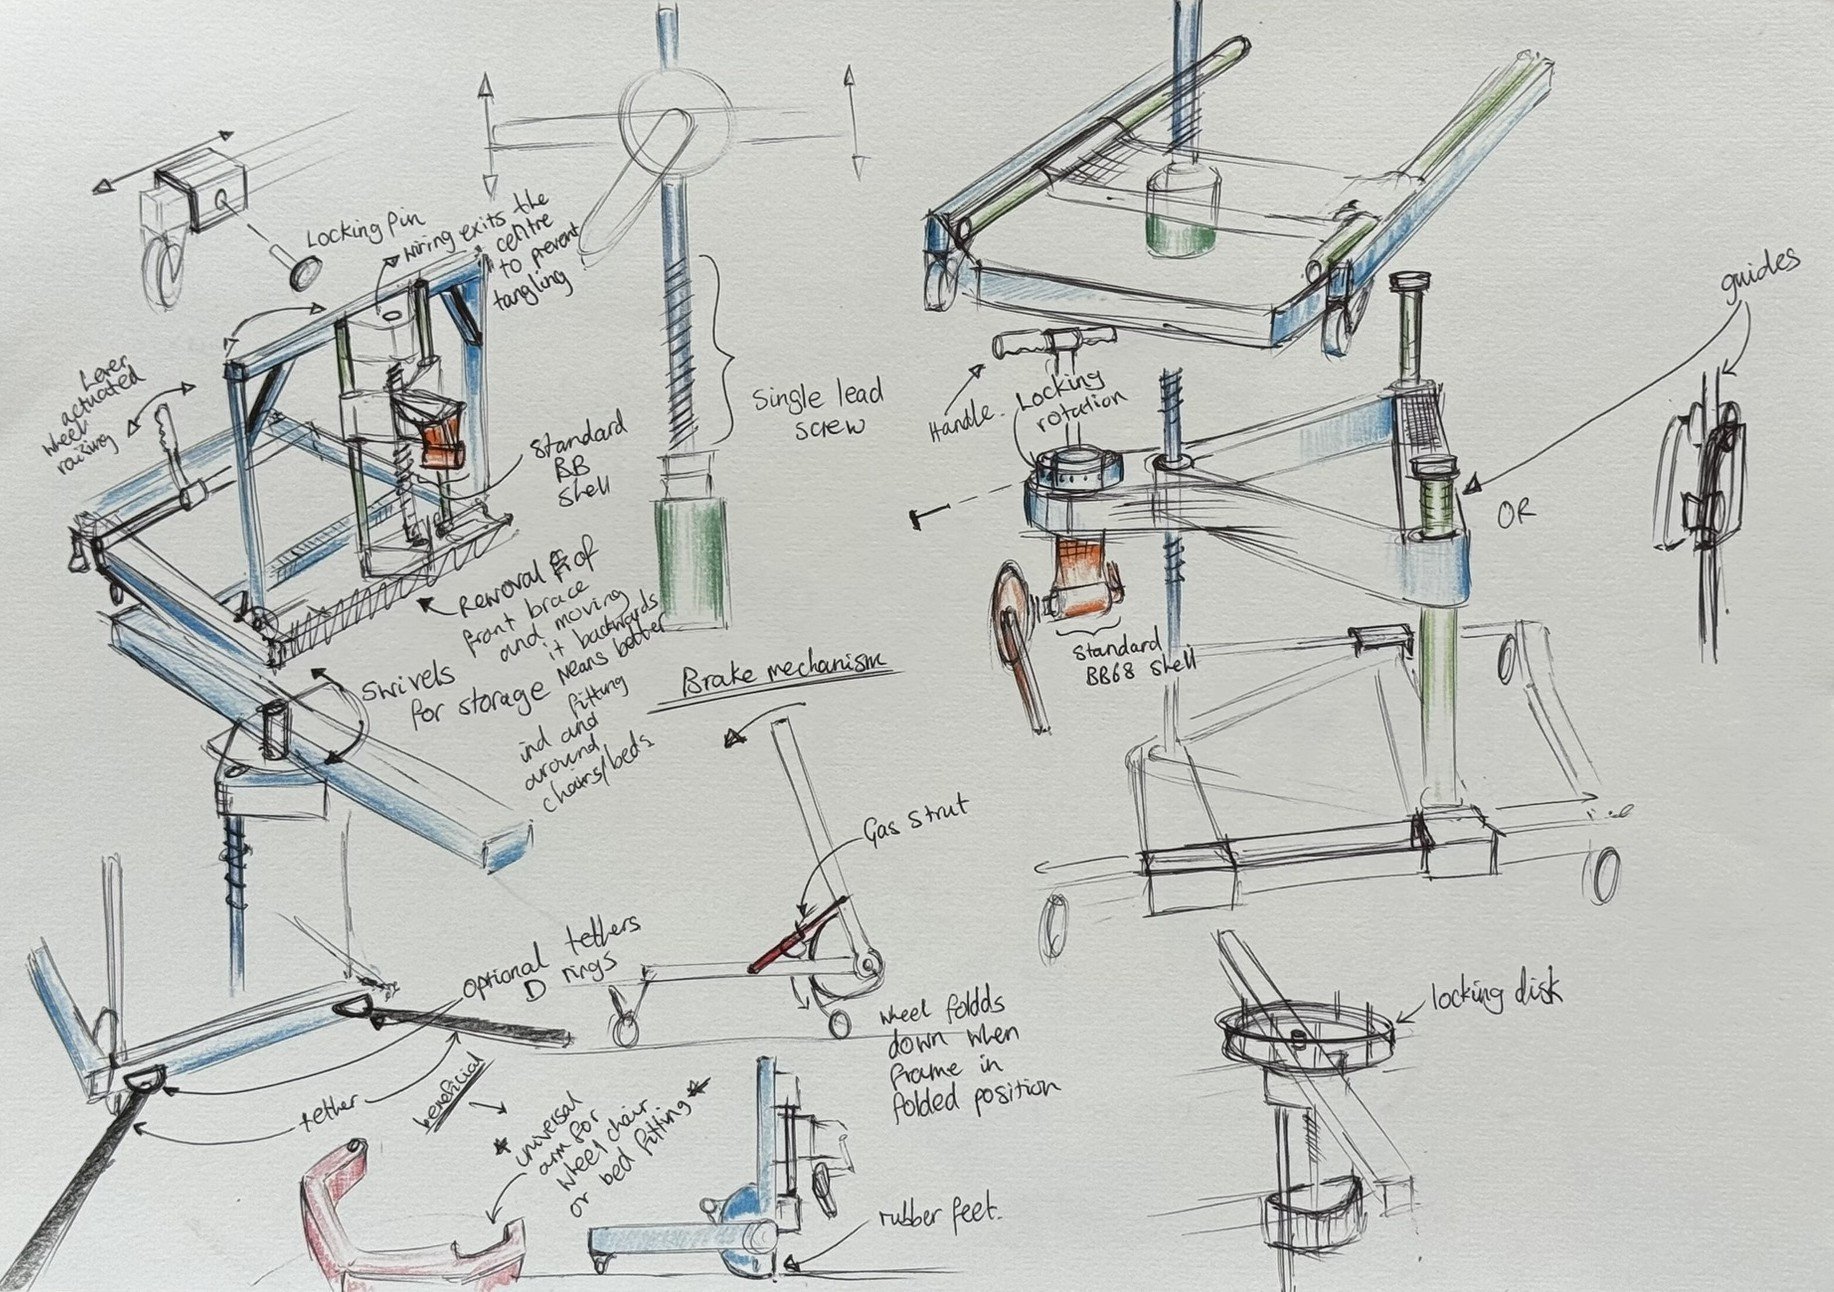 Locking Pin
wiring exits the
centre
to prevent
tangling!
Lever
actuated
wheel
raising
Standard
BB
Shell
Single lead
screw
Removal of
front brace
and moving
it backwards
means better
fitting
ind and
around
chairs/beds
Swivels
for storage
Brake mechanism
Gas strut
wheel foldds
down when
frame in
folded position
optional tethers
D rings
tether
beneficial
* universal
arm for
wheel chair
or bed fitting *
rubber feet.
Handle.
Locking
rotation
guides
OR
Standard
BB68 shell
locking disk